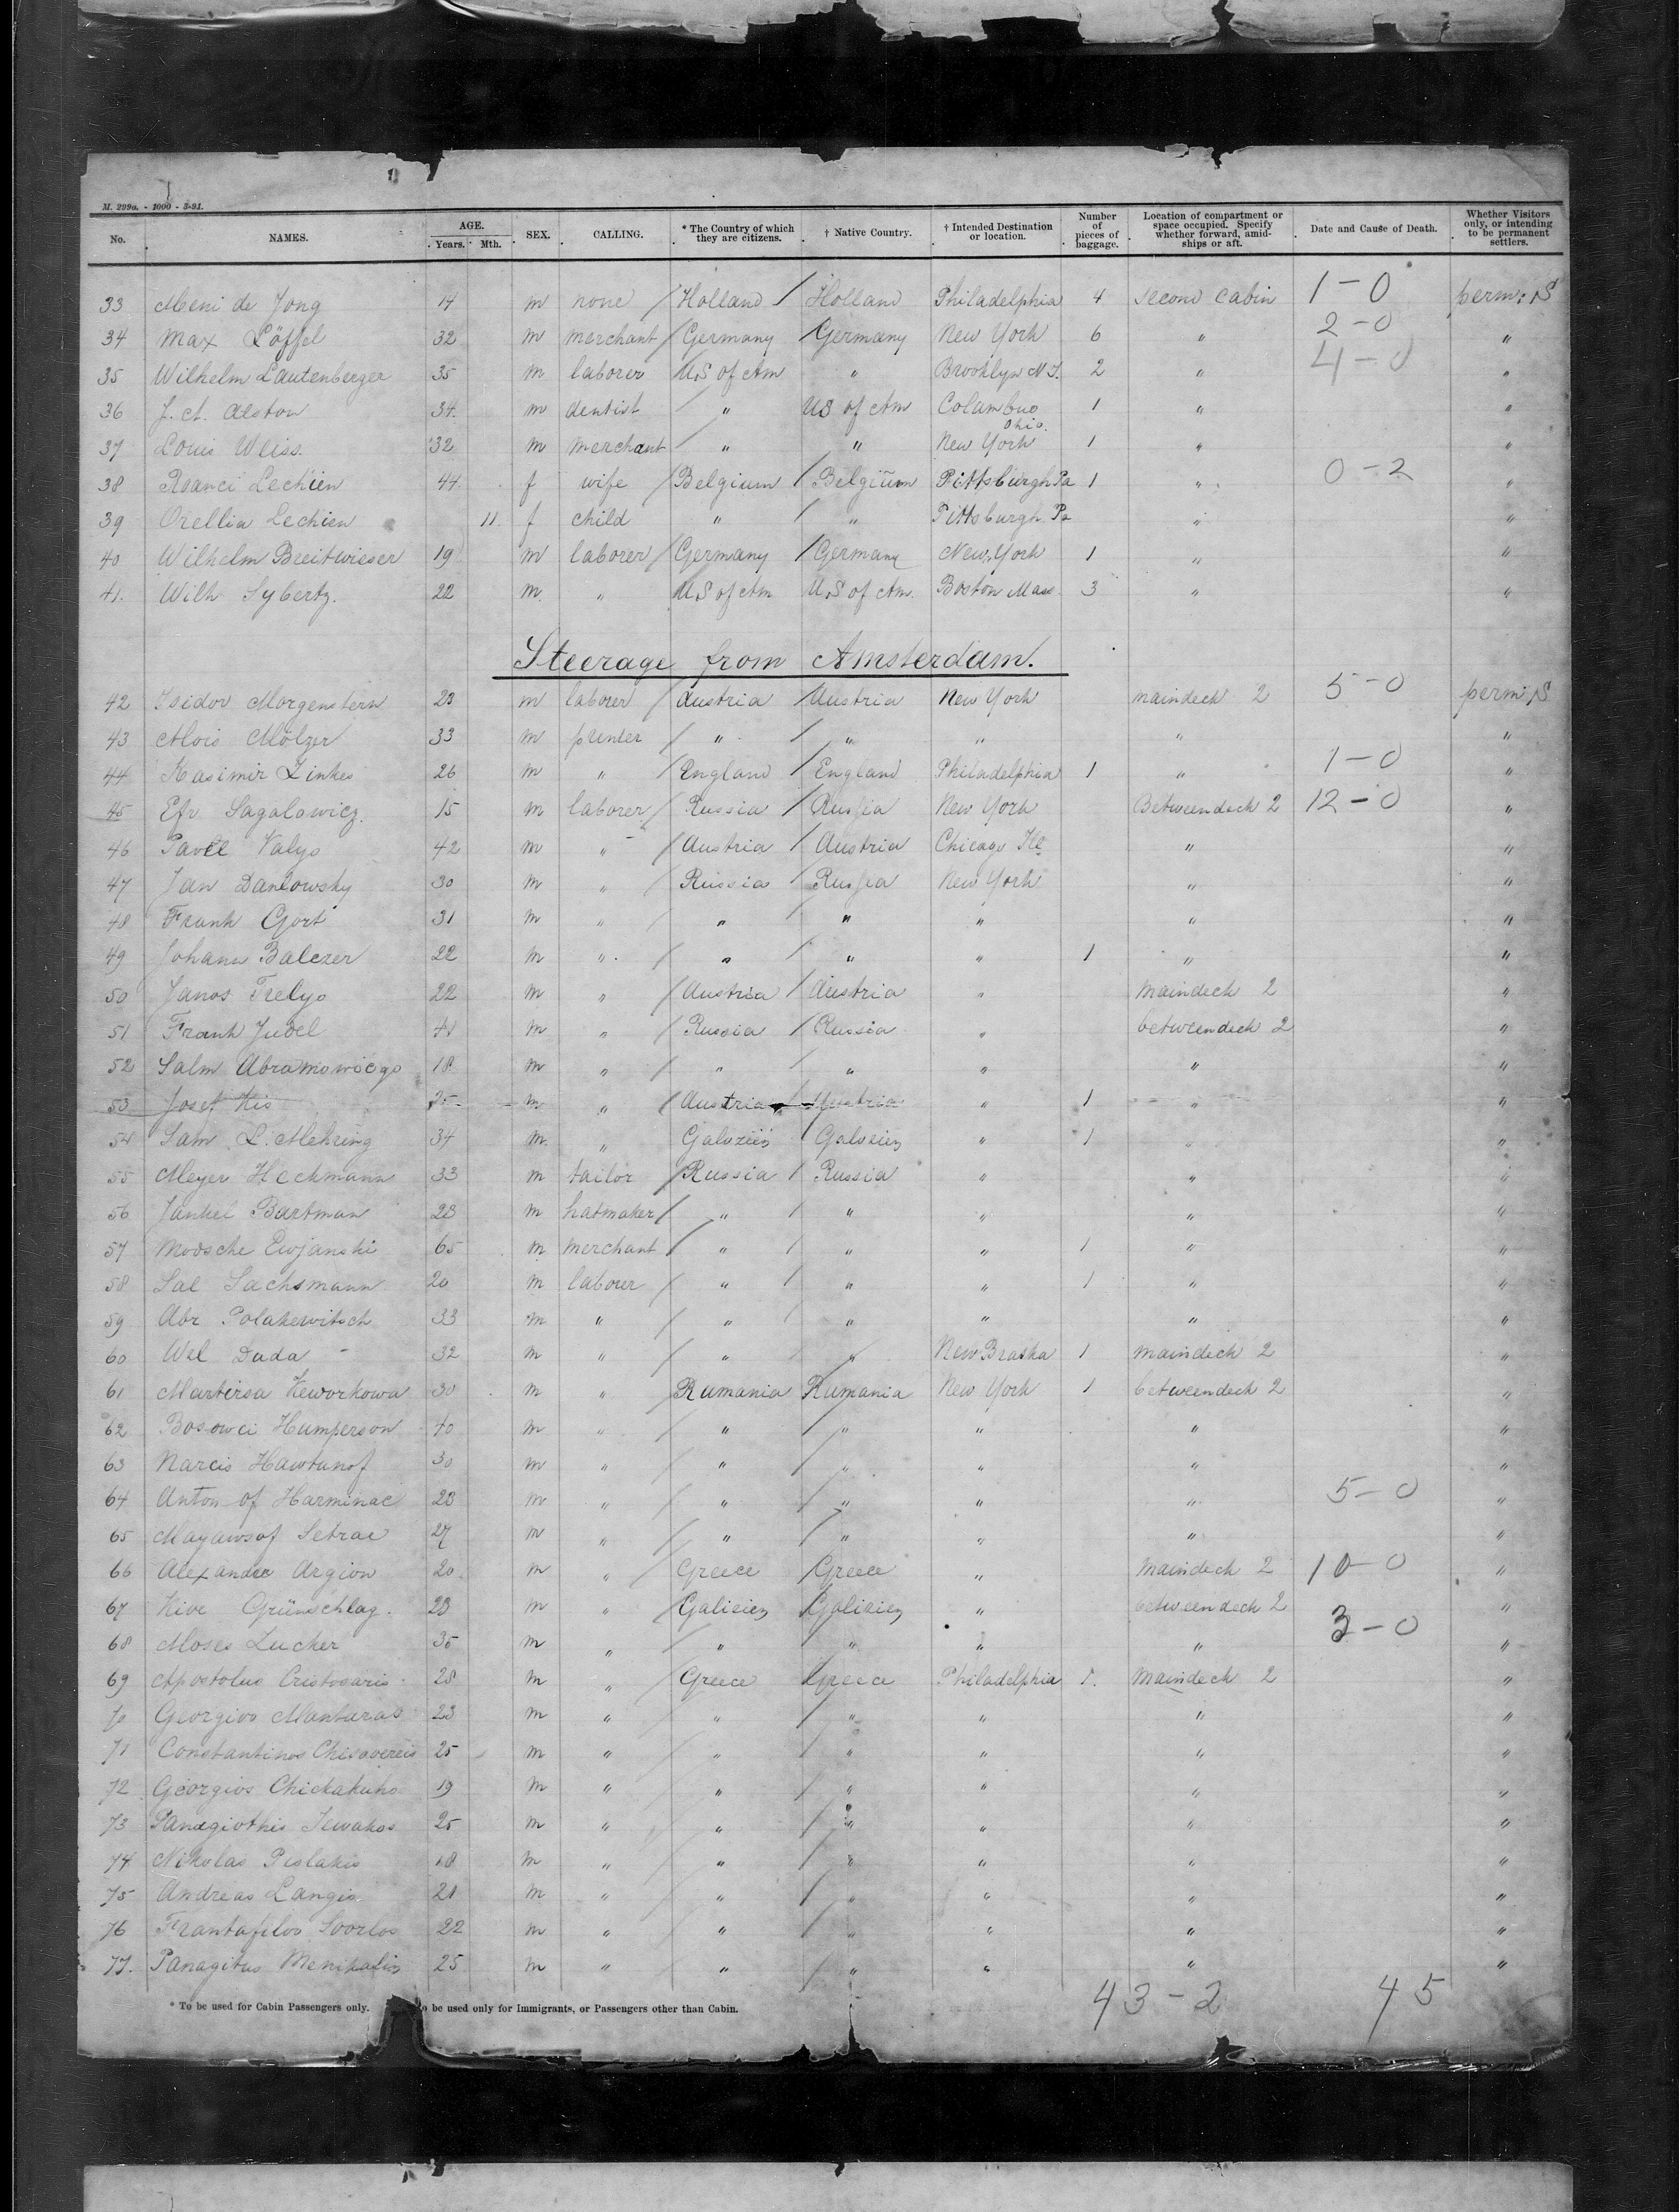 M. 299a. - 1000 - 3-91.
No. NAMES. AGE. Years. Mth. SEX. CALLING. * The Country of which they are citizens. † Native Country. † Intended Destination or location. Number of pieces of baggage. Location of compartment or space occupied. Specify whether forward, amid-ships or aft. Date and Cause of Death. Whether Visitors only, or intending to be permanent settlers.
33 Meni de Jong 14 m none / Holland / Holland Philadelphia 4 second Cabin 1-0 perm: S
34 Max Löffel 32 m merchant / Germany / Germany New York 6 " 2-0 "
35 Wilhelm Lautenberger 35 m laborer US of Am " Brooklyn 2 " 4-0 "
36 J. A. Alston 34 m dentist / " US of Am Columbus Ohio. 1 " "
37 Louis Weiss. 32 m merchant / " " New York 1 " "
38 Lechien 44 f wife / Belgium / Belgium Pittsburgh Pa 1 " 0-2 "
39 Orellia Lechien 11 f child " / " Pittsburgh Pa " "
40 Wilhelm Breitwieser 19 m laborer / Germany / Germany New York 1 " "
41. Wilh Sybertz. 22 m. " US of Am US of Am. Boston Mass. 3 " "
Steerage from Amsterdam.
42 Isidor Morgenstern 23 m laborer / Austria / Austria New York maindeck 2 5-0 perm: S
43 Alois Mölzer 33 m / " / " " " "
44 Kasimir Linkes 26 m " / England / England Philadelphia 1 " 1-0 "
45 Efr Sagalowicz. 15 m laborer / Russia / Russia New York Betweendeck 2 12-0 "
46 Pavel Valyo 42 m " / Austria / Austria Chicago Ill " "
47 Jan Danlowsky 30 m " / Russia / Russia New York " "
48 Frank Gort 31 m " / " / " " " "
49 Johann Balczer 22 m " / " / " " 1 " "
50 Janos Trelyo 22 m " / Austria / Austria " Maindeck 2 "
51 Frank Judel 41 m " / Russia / Russia " betweendeck 2 "
52 Salm 18 m " / " / " " " "
53 Josef Kis 25 m " / Austria / Austria " 1 " "
54 Sam L. Mehring 34 m. " Galizien / Galizien " 1 " "
55 Meyer Heckmann 33 m tailor / Russia / Russia " " "
56 Jankel Bartman 23 m hatmaker / " / " " " "
57 Modsche Ewjanski 65 m merchant / " / " " 1 " "
58 Sal Sachsmann 20 m laborer / " / " " 1 " "
59 Abr Polakewitsch 33 m " / " / " " " "
60 Wel Duda 32 m " / " / " New Braska 1 maindeck 2 "
61 Martirsa Keworkowa 30 m " Rumania / Rumania New York 1 betweendeck 2 "
62 Bosowci Humperson 40 m " / " / " " " "
63 Narcis Hawtunof 30 m " / " / " " " "
64 Anton of Harminac 23 m " / " / " " " 5-0 "
65 Mayawsof Setrac 27 m " / " / " " " "
66 Alexander Argion 20 m " Greece / Greece " Maindeck 2 10-0 "
67 Kive Grünschlag. 23 m " / Galizien / Galizien " betweendeck 2 "
68 Moses Zucker 35 m " / " / " " " 3-0 "
69 Apostolus Cristosaris 28 m " / Greece / Greece Philadelphia 1. Maindeck 2 "
70 Georgivo Manturas 23 m " / " / " " " "
71 Constantinos Chisovereis 25 m " / " / " " " "
72 Georgios Chickakuko 19 m " / " / " " " "
73 Panagiothis 25 m " / " / " " " "
74 Nikolas Pislakis 18 m " / " / " " " "
75 Andreas Langis 21 m " / " / " " " "
76 Frantafilos Soorlos 22 m " / " / " " " "
77. Panagitus 25 m " / " / " " " "
* To be used for Cabin Passengers only. o be used only for Immigrants, or Passengers other than Cabin.
43-2 45